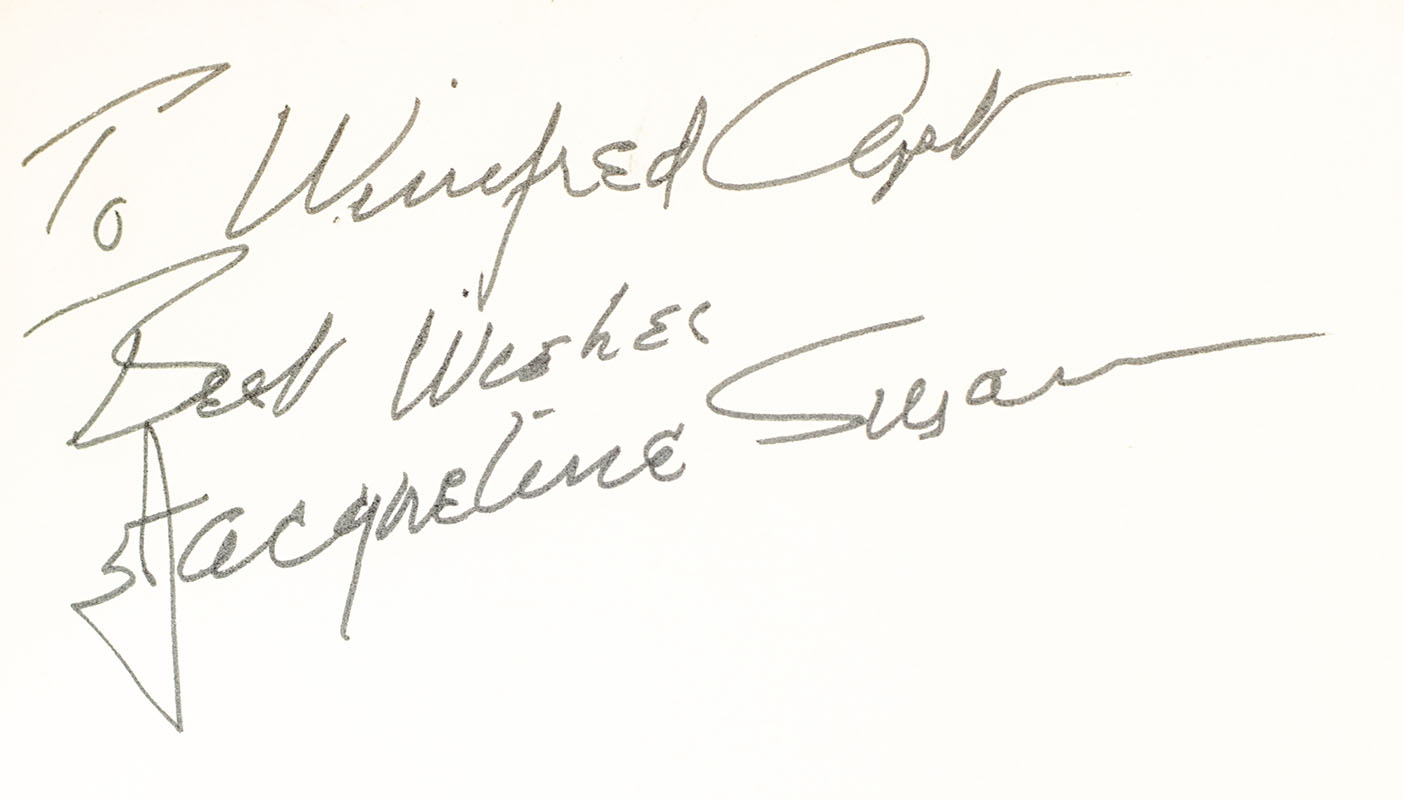 To Winifred
Best Wishes
Jacqueline Susann